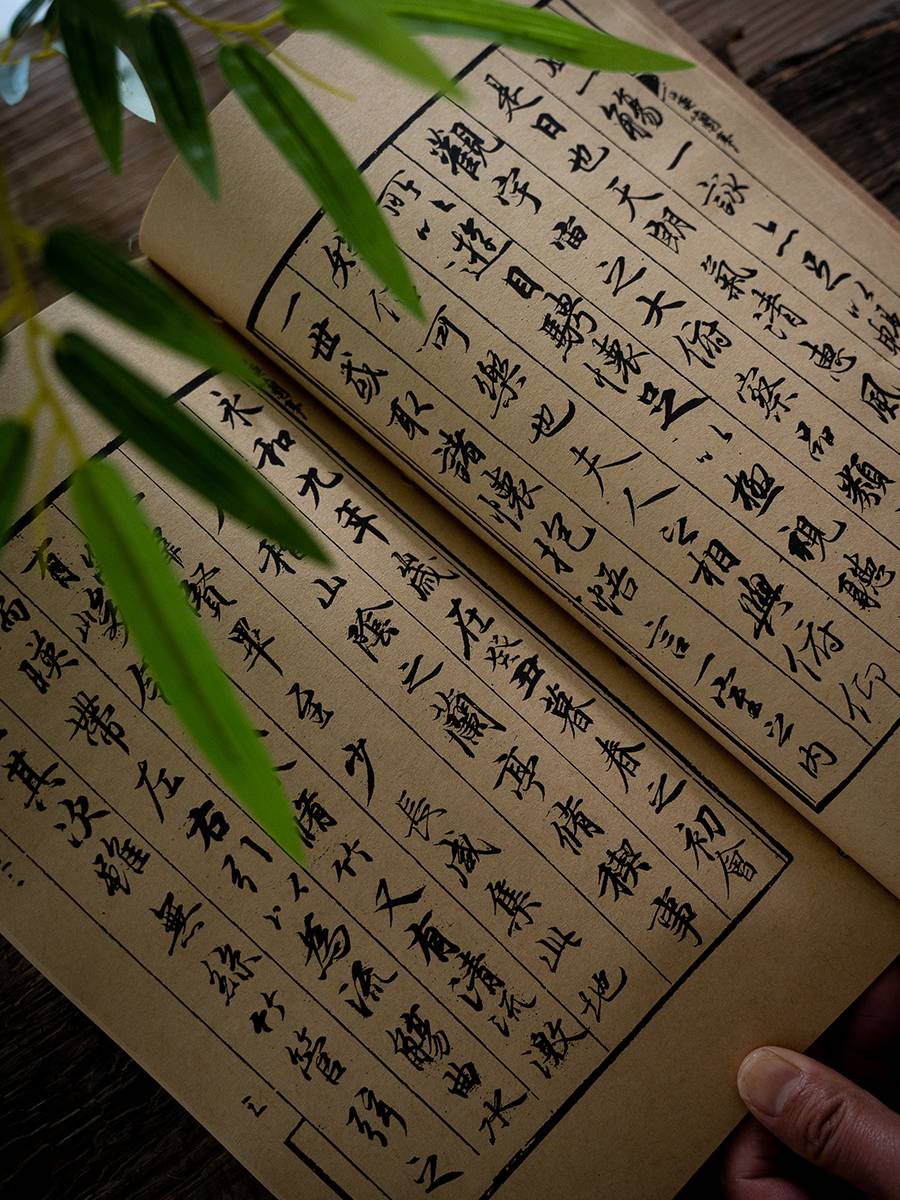 永和九年歲在癸丑暮春之初會
稽山陰之蘭亭脩禊事
賢畢至少長咸集此地
有峻脩竹又有清流激
湍暎帶左右引以為流觴曲水
其次雖無絲竹管弦之
一觴一詠亦足以暢
是日也天朗氣清惠風
觀宇宙之大俯察品類
所以遊目騁懷足以極視聽
信可樂也夫人之相與俯仰
一世或取諸懷抱悟言一室之內